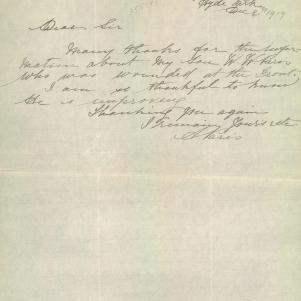 Hyde
Dec 2nd 1919
Dear Sir
Many thanks for the infor
mation about my Son W W
who was wounded at the Front.
I am so thankful to know
He is improving
Thanking You again
I Remain Yours etc